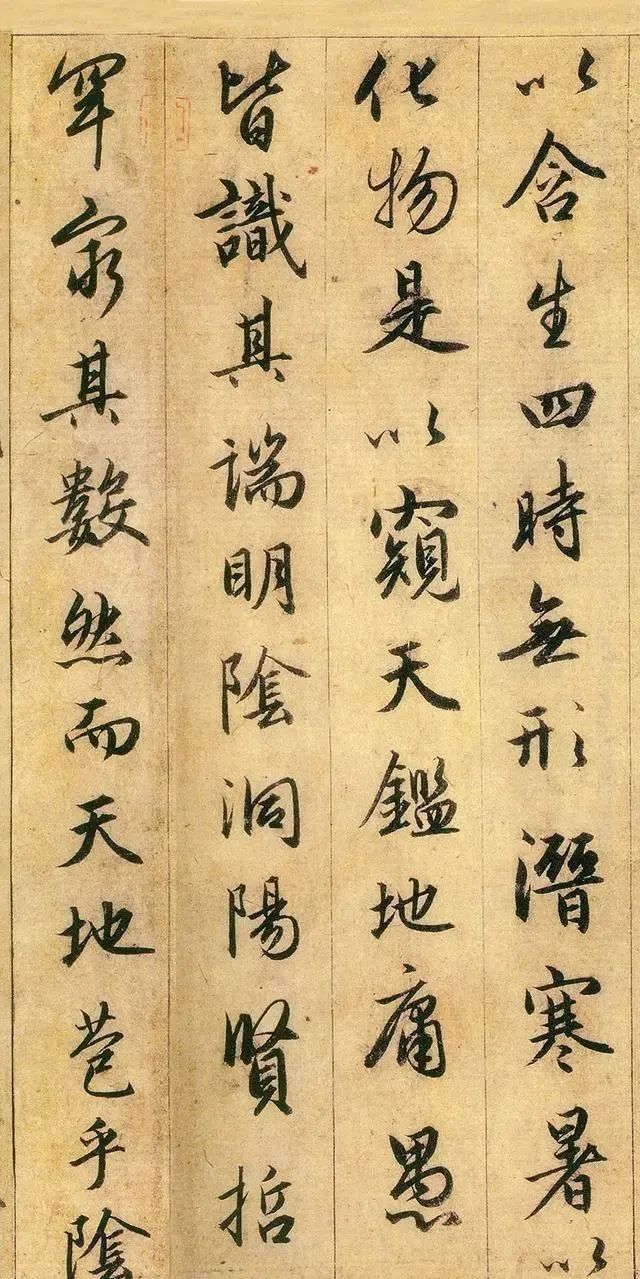 以含生四時無形潛寒暑以
化物是以窺天鑑地庸愚
皆識其端明陰洞陽賢哲
罕窮其數然而天地苞乎陰